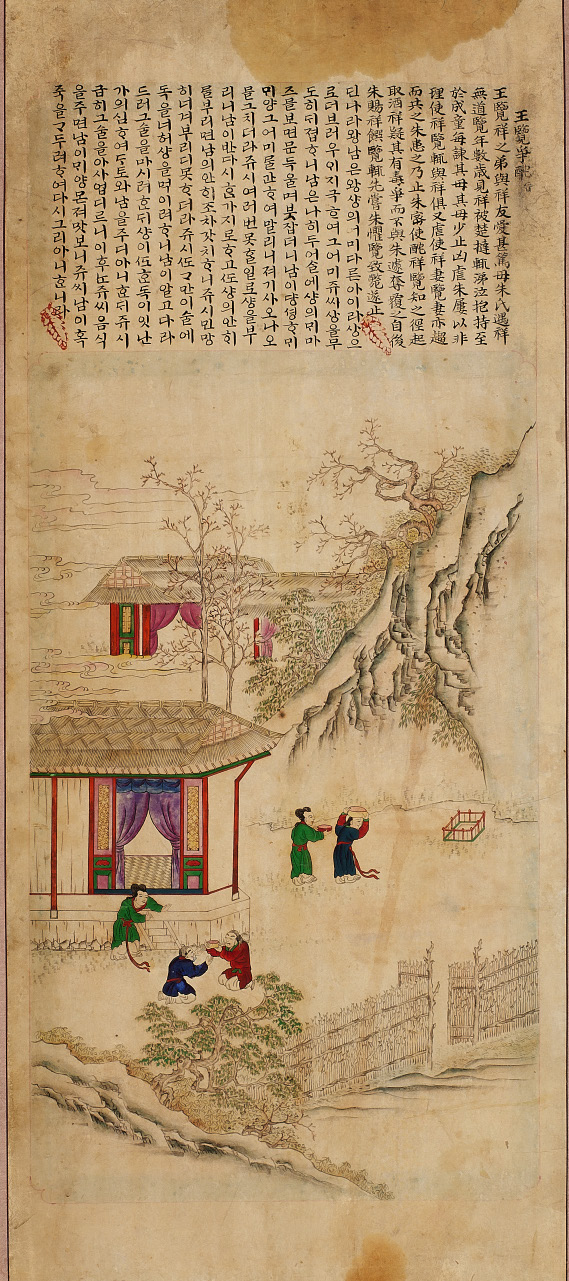 王覽爭酖
王覽祥之弟與祥友愛甚篤母朱氏遇祥
無道覽年數歲見祥被楚撻輒涕泣抱持至
於成童每諫其母其母少止凶虐朱屢以非
理使祥覽輒與祥俱又虐使祥妻覽妻亦趨
而共之朱患之乃止朱密使酖祥覽知之徑起
取酒祥疑其有毒爭而不與朱遽奪覆之自後
朱賜祥饌覽輒先嘗朱懼覽致斃遂止
진나라왕남은왕샹의어미다른아이라샹으
로더브러우ᄋᆡ지극ᄒᆞ여그어미쥬씨샹을무
도히ᄃᆡ졉ᄒᆞ니남은나히두어슬에샹의ᄆᆡ마
즈믈보면문득울며븟잡더니남이댱셩ᄒᆞᄆᆡ
ᄆᆡ양그어미ᄅᆞᆯ간ᄒᆞ여말리니져기사오나오
믈그치더라쥬시여러번못ᄒᆞᆯ일로샹을부
리니남이반다시ᄒᆞᆫ가지로ᄒᆞ고ᄯᅩ샹의안ᄒᆡ
를부리면남의안ᄒᆡ조차갓치ᄒᆞ니쥬시민망
히너겨부리디못ᄒᆞ더라쥬시ᄯᅩᄀᆞ만이술에
독을너허샹을먹이려ᄒᆞ니남이알고다라
드러그술을마시려ᄒᆞ되샹이ᄯᅩᄒᆞᆫ독이잇난
가의심ᄒᆞ여ᄃᆞ토와남을주디아니ᄒᆞᆫᄃᆡ쥬시
급히그술을아사업디르니이후ᄂᆞᆫ쥬씨음식
을주면남이ᄆᆡ양몬져맛보니쥬씨남이혹
죽을ᄀᆞ두려ᄒᆞ여다시그리아니ᄒᆞ니라